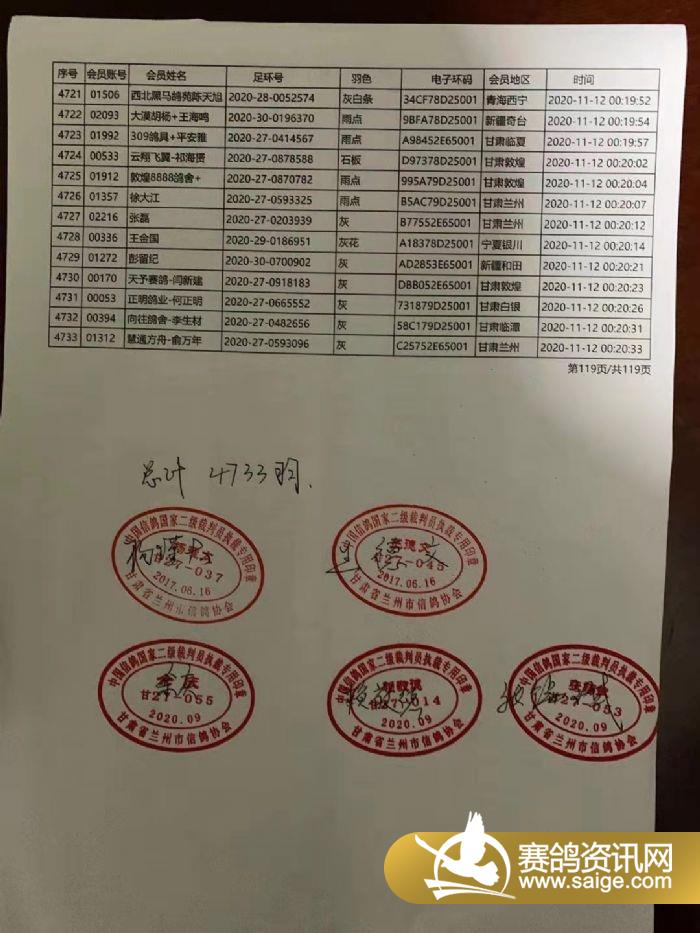 序号 会员账号 会员姓名 足环号 羽色 电子环码 会员地区 时间
4721 01506 西北黑马鸽苑陈天旭 2020-28-0052574 灰白条 34CF78D25001 青海西宁 2020-11-12 00:19:52
4722 02093 大漠胡杨+王海鸣 2020-30-0196370 雨点 9BFA78D25001 新疆奇台 2020-11-12 00:19:54
4723 01992 309鸽具+平安雅 2020-27-0414567 雨点 A98452E65001 甘肃临夏 2020-11-12 00:19:57
4724 00533 云翔飞翼-祁海贤 2020-27-0878588 石板 D97378D25001 甘肃敦煌 2020-11-12 00:20:02
4725 01912 敦煌8888鸽舍+ 2020-27-0870782 雨点 995A79D25001 甘肃敦煌 2020-11-12 00:20:04
4726 01357 徐大江 2020-27-0593325 雨点 B5AC79D25001 甘肃兰州 2020-11-12 00:20:07
4727 02216 张磊 2020-27-0203939 灰 B77552E65001 甘肃兰州 2020-11-12 00:20:12
4728 00336 王金国 2020-29-0186951 灰花 A18378D25001 宁夏银川 2020-11-12 00:20:14
4729 01272 彭留纪 2020-30-0700902 灰 AD2853E65001 新疆和田 2020-11-12 00:20:21
4730 00170 天予赛鸽-闫新建 2020-27-0918183 灰 DBB052E65001 甘肃敦煌 2020-11-12 00:20:23
4731 00053 正明鸽业-何正明 2020-27-0665552 灰 731879D25001 甘肃白银 2020-11-12 00:20:26
4732 00394 向往鸽舍-李生材 2020-27-0482656 灰 58C179D25001 甘肃临潭 2020-11-12 00:20:31
4733 01312 慧通方舟-俞万年 2020-27-0593096 灰 C25752E65001 甘肃兰州 2020-11-12 00:20:33
第119页/共119页
总计 4733羽.
中国信鸽国家二级裁判员执裁专用印章
甘27-037
2017.06.16
甘肃省兰州市信鸽协会
中国信鸽国家二级裁判员执裁专用印章
甘27-045
2017.06.16
甘肃省兰州市信鸽协会
中国信鸽国家二级裁判员执裁专用印章
甘27-055
2020.09
甘肃省兰州市信鸽协会
中国信鸽国家二级裁判员执裁专用印章
甘27-014
2020.09
甘肃省兰州市信鸽协会
中国信鸽国家二级裁判员执裁专用印章
甘27-053
2020.09
甘肃省兰州市信鸽协会
赛鸽资讯网
www.saige.com